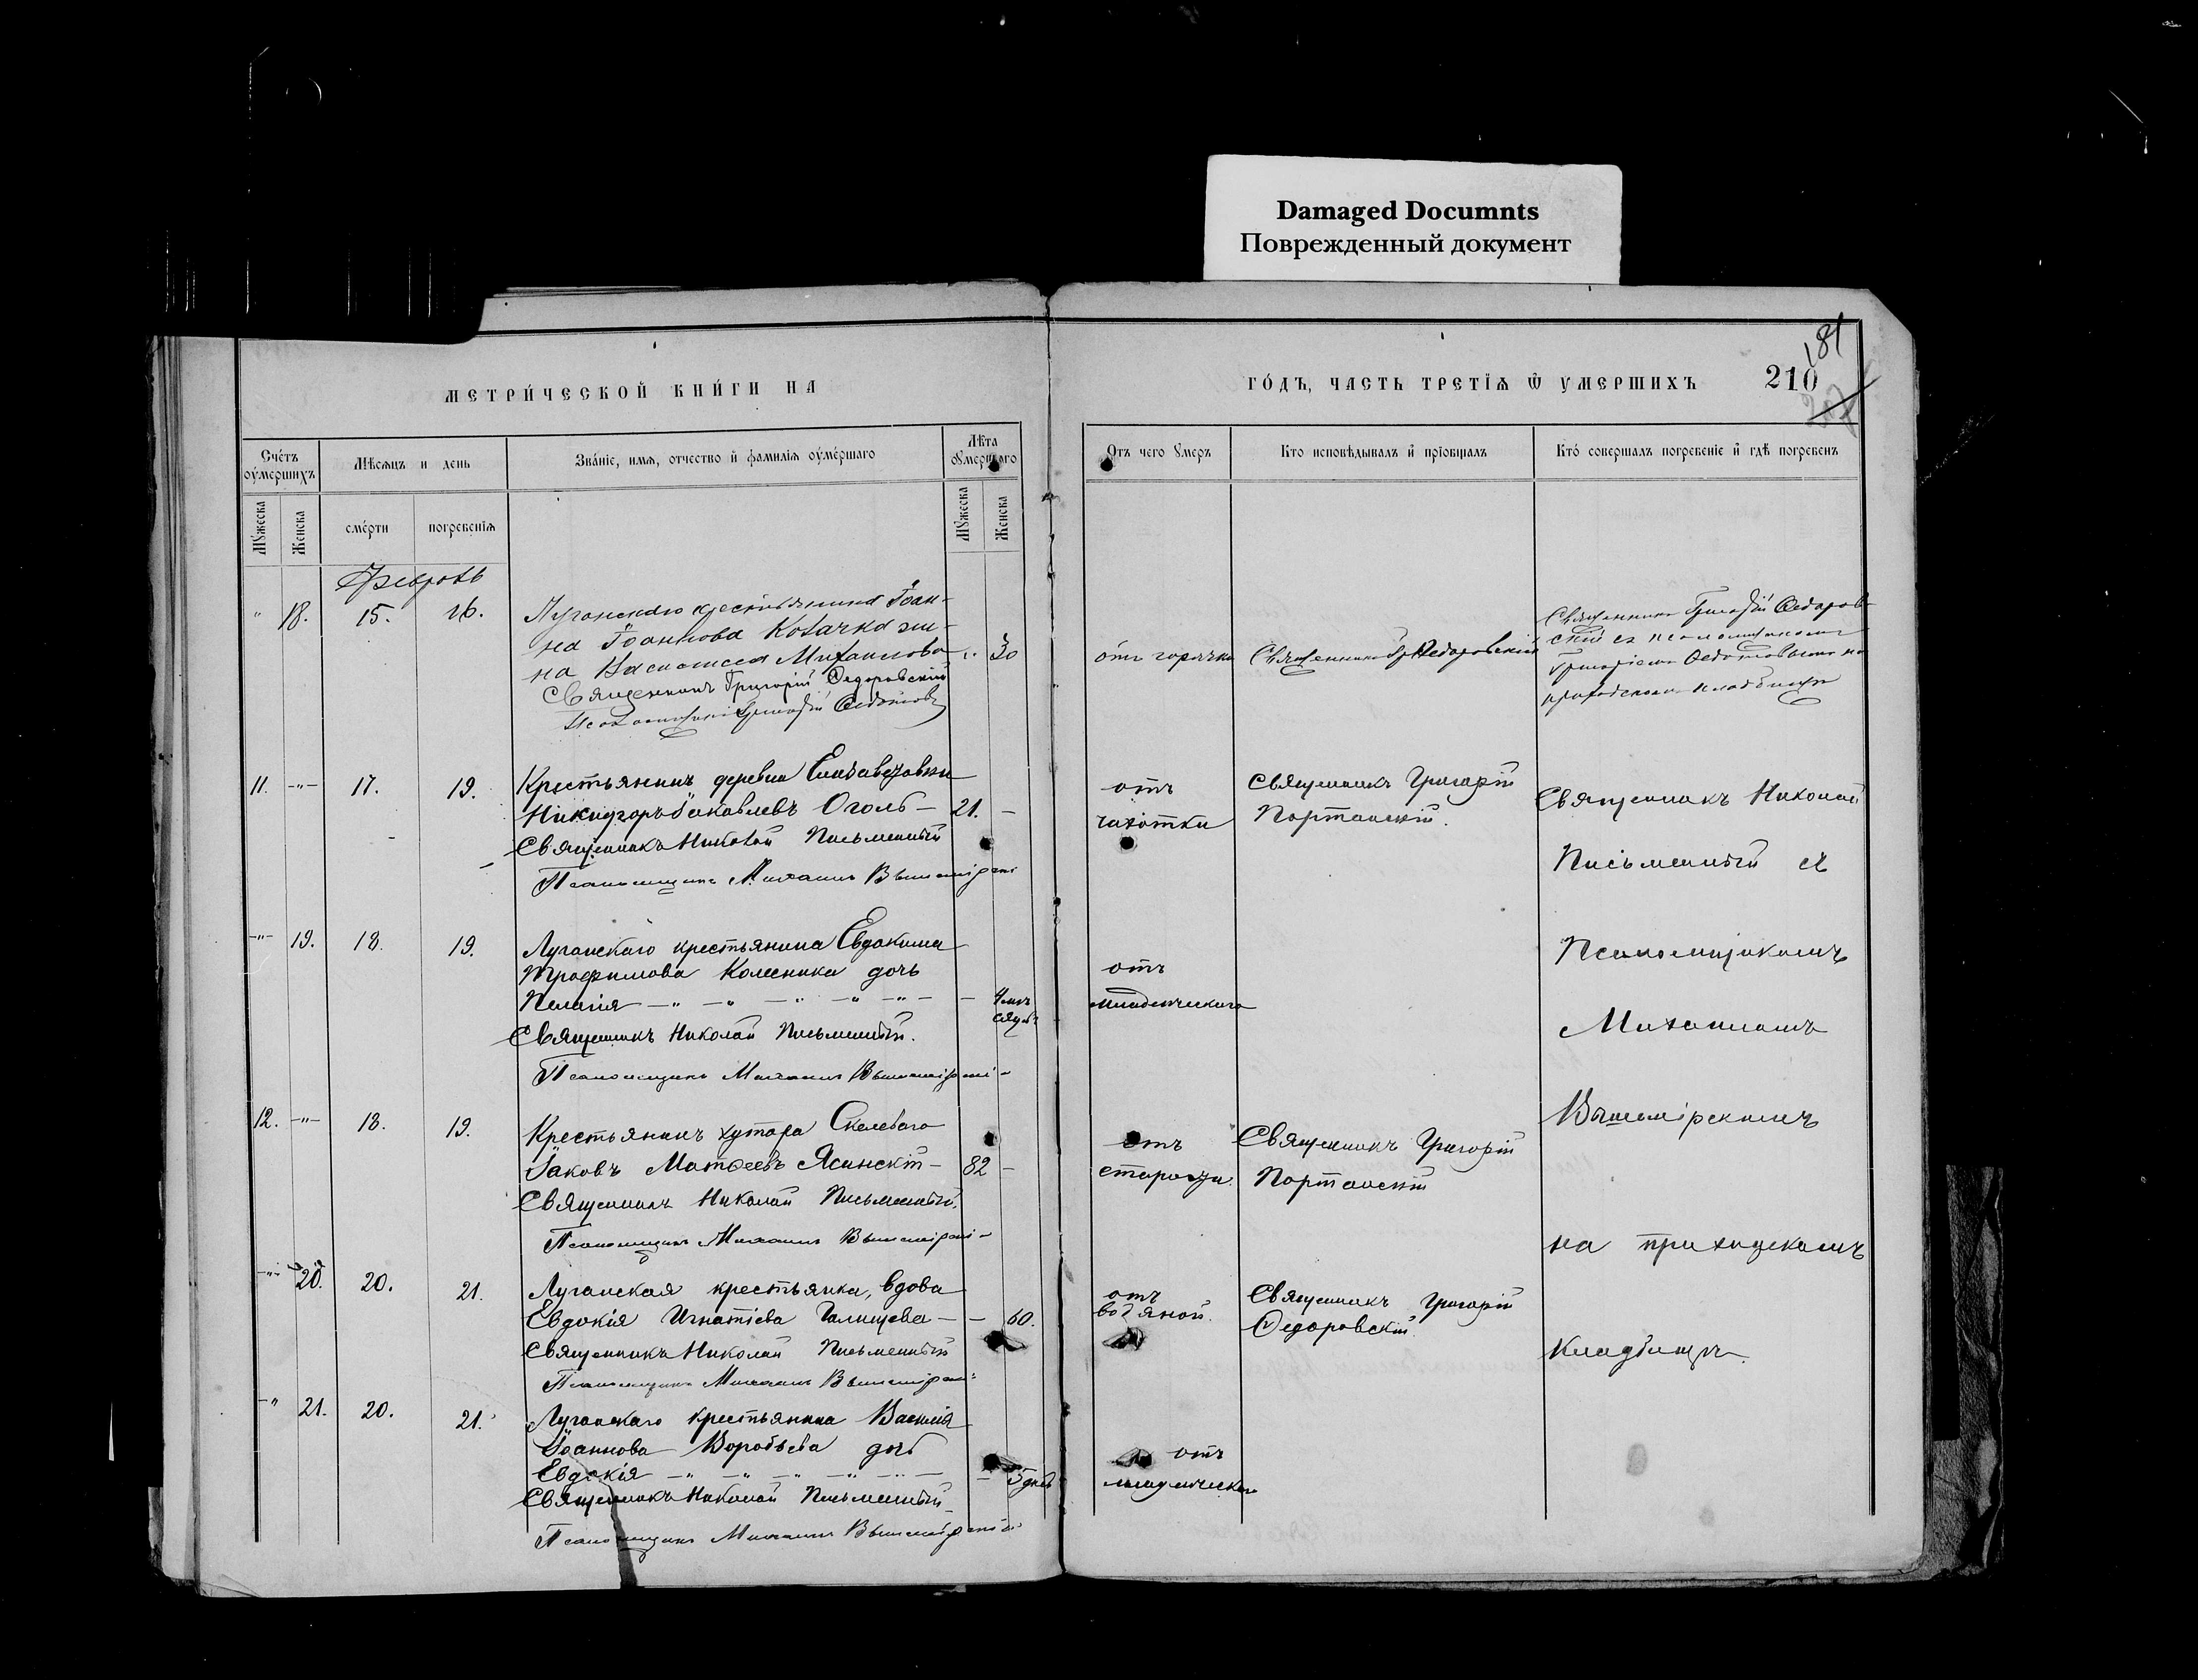 Damaged Documnts
Поврежденный документ
181
МЕТРИ́ЧЕСКОЙ КНИ́ГИ НА
ГО́ДЪ, ЧАСТЬ ТРЕТІѦ Ѿ УМЕРШИХЪ
210
Сче́тъ оу́мершихъ
Мѣсѧцъ и день
Зва́ніе, имѧ, отчество и фамилія оу́ме́ршаго
Лѣта оумершаго
Отъ чего умеръ
Кто исповѣдывалъ и пріобщалъ
Кто́ совершалъ погребеніе и гдѣ погребенъ
Мужеска
Женска
сме́рти
погребенїѧ
Мужеска
Женска
Февраль
18. 15. 16. Луганскаго крестьянина Іоан-
на Іоаннова Козачка же-
на Васса Михаилова 30
Священникъ Григорій Федоровскій
Псаломщикъ Григорій Федотовъ
отъ горячки
Священникъ Гр Федоровскій
Священникъ Григорій Федоров-
скій съ псаломщикомъ
Григоріемъ Федотовымъ на
приходскомъ кладбищѣ
11. -"- 17. 19. Крестьянинъ деревни Елизаветовки
Никифоръ Іаковлевъ Оголь - 21. -
Священникъ Николай Письменный
Псаломщикъ Михаилъ Вышемірскій
отъ
чахотки
Священникъ Григорій
Портанскій.
Священникъ Николай
Письменный съ
-"- 19. 18. 19. Луганскаго крестьянина Евдокима
Трофимова Колесника дочь
Пелагія -"- -"- -"- -"- -"- - 4 мѣ
сяцѣ
Священникъ Николай Письменный.
Псаломщикъ Михаилъ Вышемірскі-
отъ
младенческаго
Псаломщикомъ
Михаиломъ
12. -"- 18. 19. Крестьянинъ хутора Скелеваго
Іаковъ Матѳеевъ Ясинскій - 82 -
Священникъ Николай Письменный.
Псаломщикъ Михаилъ Вышемірскі-
отъ
старости
Священникъ Григорій
Портанскій
Вышемірскимъ
на приходскомъ
-"- 20. 20. 21. Луганская крестьянка, вдова
Евдокія Игнатіева Галицева - - 60.
Священникъ Николай Письменный
Псаломщикъ Михаилъ Вышемірскі-
отъ
водяной.
Священникъ Григорій
Федоровскій.
Кладбищѣ.
-" 21. 20. 21. Луганскаго крестьянина Василія
Іоаннова Воробьева дочь
Евдокія -"- -"- -"- -"- -"- - - 5 дней
Священникъ Николай Письменный
Псаломщикъ Михаилъ Вышемірскій
отъ
младенческаго